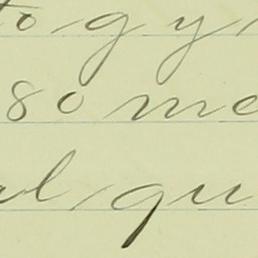 to gy
80 me
al qu